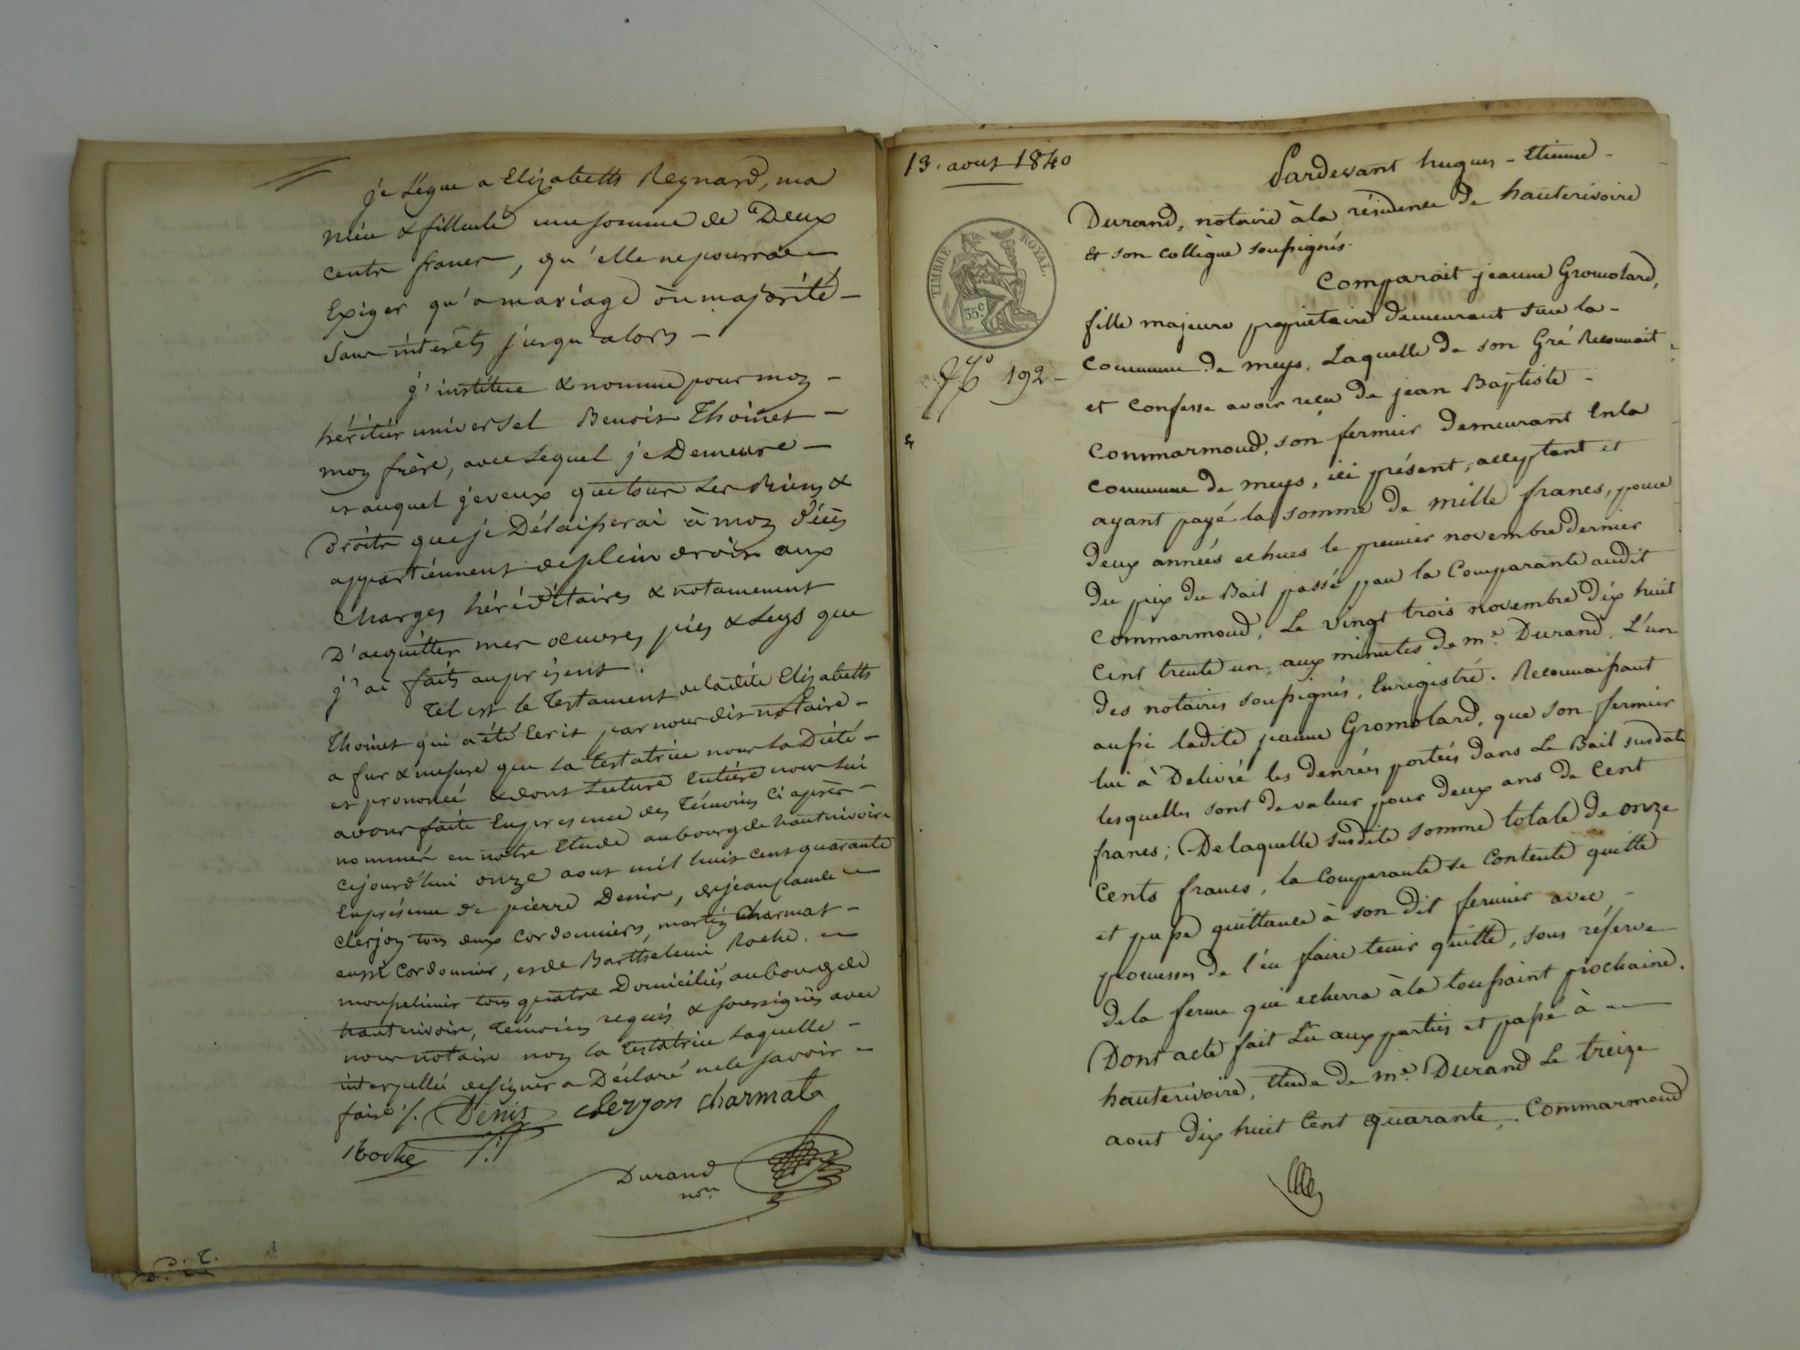 je Légue a Elizabeth Reynard, ma
niéce & filleule une somme de Deux
cents francs, qu'elle ne pourra
Exiger qu'a mariage ou majorité
sans intérêts jusqu'alors
j'institue & nomme pour mon
héritier universel Benoit Thoinet
mon frère, avec Lequel je Demeure
et auquel je veux que tous Les Biens &
Droits que je Délaisserai à mon décès
appartiennent de plein droit aux
Charges héréditaires & notamment
D'acquitter mes œuvres pies & Legs que
j'ai faits au présent.
Tel est le Testament de ladite Elizabeth
Thoinet qui a été Ecrit par nous dit notaire
a fur & mesure que La Testatrice nous La Dicté
et prononcé & dont Lecture Entière nous lui
avons faite En présence des Témoins Ci après
nommés en notre Etude au bourg de hauterivoire
cejourd'hui onze aout mil huit cent quarante
En présence de pierre Denis, de jean claude
Clerjon tous deux Cordonniers, martin Charmat
aussi Cordonnier, et de Barthelemi Roche
tous quatre Domiciliés au bourg de
hauterivoire, Témoins requis & soussignés avec
nous notaire non la Testatrice Laquelle
interpellée de signer a Déclaré ne le savoir
faire ./. Denis Clerjon Charmat
Roche
Durand
nore
D. T.
13. aout 1840
TIMBRE ROYAL.
35c
192
Pardevant hugues - Etienne
Durand, notaire à la résidence de hauterivoire
et son collègue soussignés.
Comparait jeanne Gromolard,
fille majeure propriétaire demeurant sur la
commune de meys. Laquelle de son Gré Reconnait
et confesse avoir reçu de jean Baptiste
Commarmond, son fermier demeurant En la
commune de meys, ici présent, acceptant et
ayant payé la somme de mille francs, pour
deux années echues le premier novembre dernier
du prix du Bail passé par la Comparante audit
Commarmond, Le vingt trois novembre dix huit
Cent trente un, aux minutes de me. Durand, L'un
des notaires soussignés, Enregistré. Reconnaissant
aussi ladite jeanne Gromolard, que son fermier
lui à Délivré les denrées portées dans Le Bail susdaté
lesquelles sont de valeur pour deux ans de Cent
francs; De laquelle susdite somme totale de onze
Cents francs, la Comparante se Contente quitte
et passe quittance à son dit fermier avec
promesses de l'en faire tenir quitte, sous réserve
de la ferme qui echerra à la toussaint prochaine.
Dont acte fait Lu aux parties et passé à
hauterivoire, Etude de me. Durand Le treize
aout dix huit Cent quarante, Commarmond